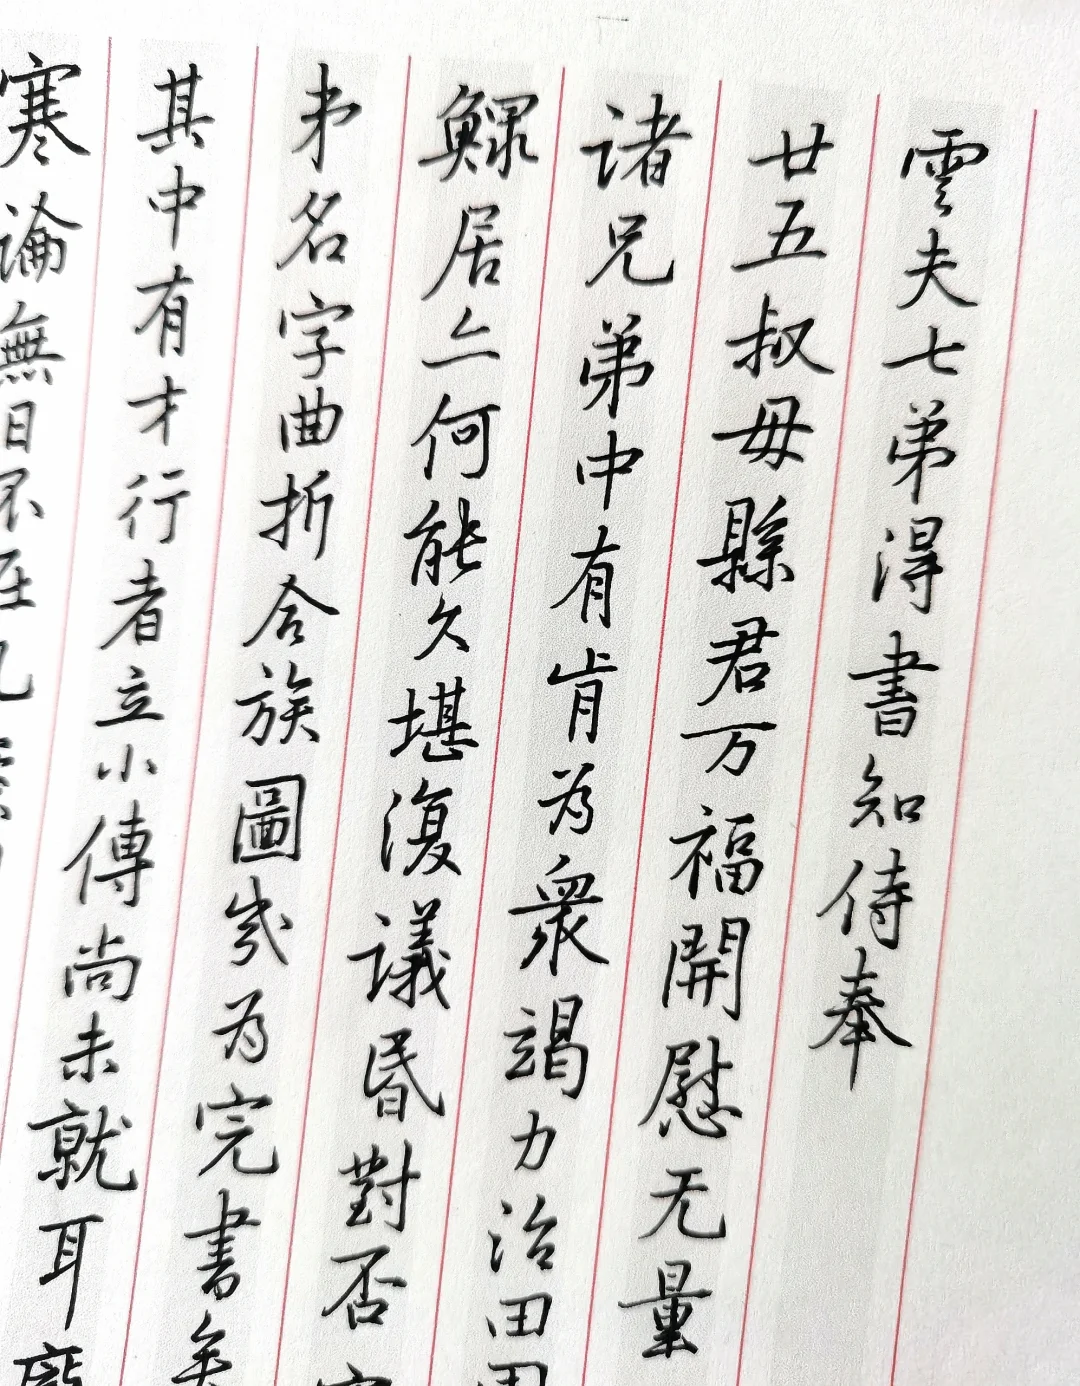 雲夫七弟得書知侍奉
廿五叔母縣君万福開慰无量
诸兄弟中有肯为衆竭力治田
鰥居亦何能久堪復议昏對否
弟名字曲折合族圖岁为完書矣
其中有才行者立小傳尚未就耳
寒論無日不在几案